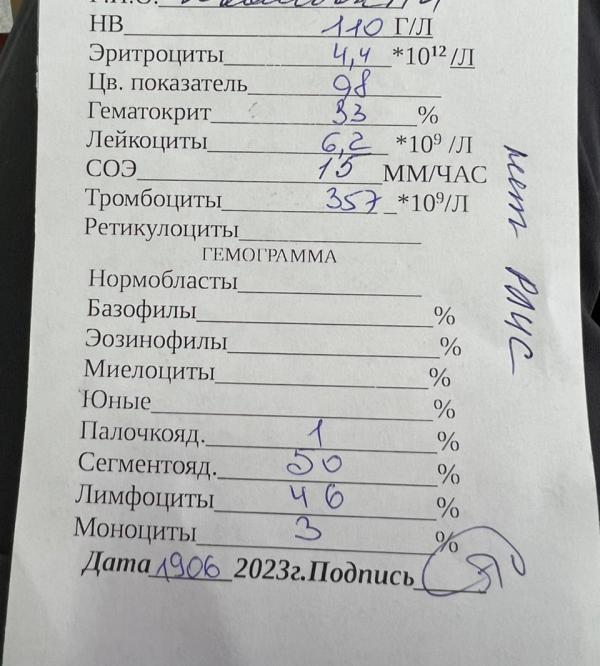 НВ 110 Г/Л
Эритроциты 4,4 *10¹² /Л
Цв. показатель 98
Гематокрит 33 %
Лейкоциты 6,2 *10⁹ /Л
СОЭ 15 ММ/ЧАС
Тромбоциты 357 *10⁹/Л
Ретикулоциты
ГЕМОГРАММА
Нормобласты
Базофилы %
Эозинофилы %
Миелоциты %
Юные %
Палочкояд. 1 %
Сегментояд. 50 %
Лимфоциты 46 %
Моноциты 3 %
Дата 1906 2023г.Подпись